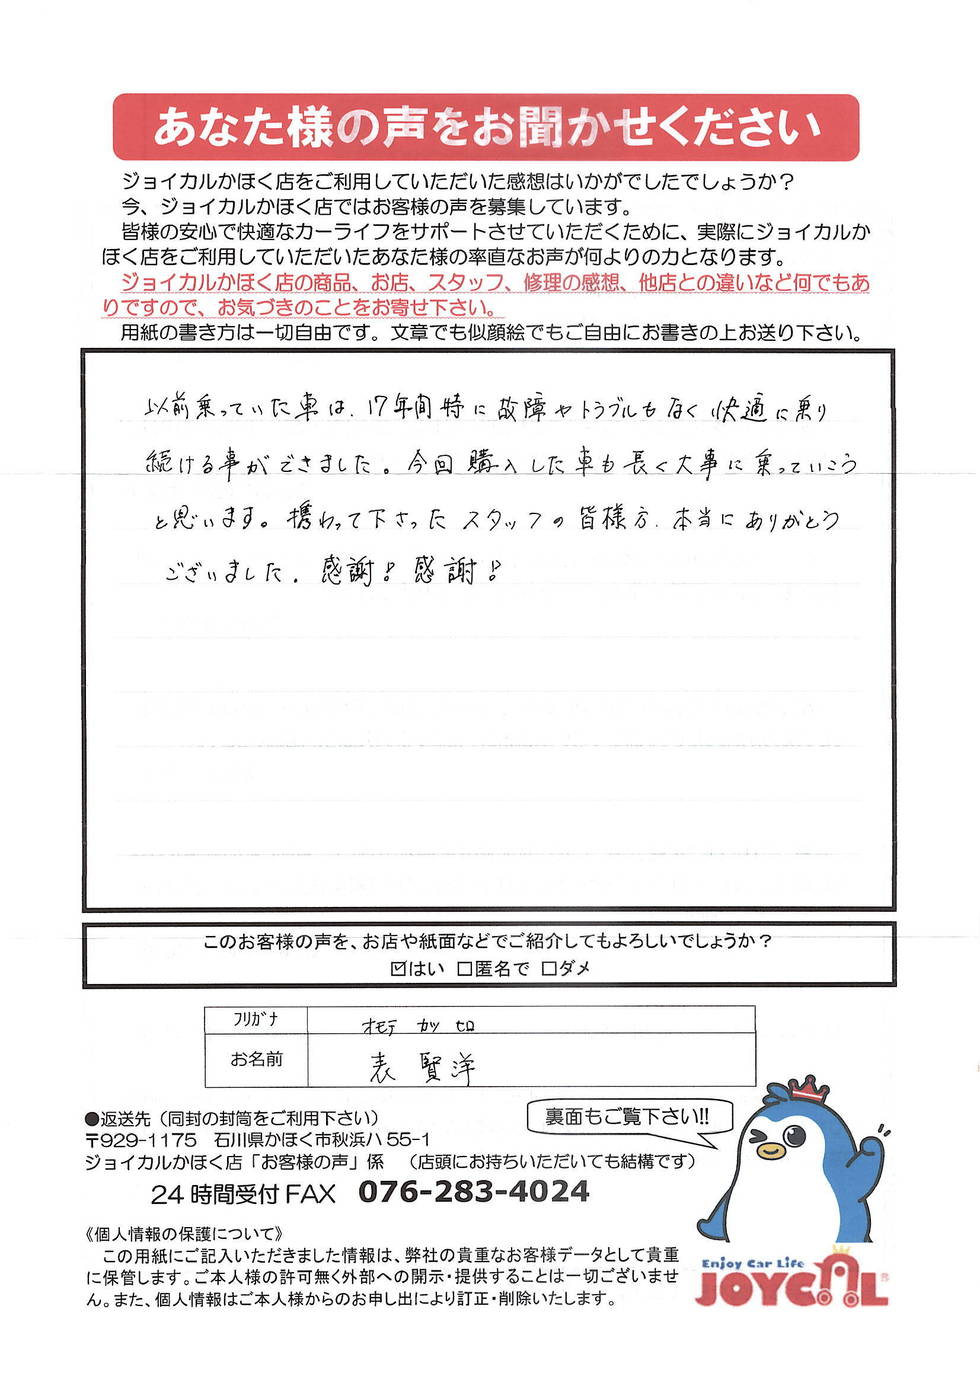 あなた様の声をお聞かせください
ジョイカルかほく店をご利用していただいた感想はいかがでしたでしょうか？
今、ジョイカルかほく店ではお客様の声を募集しています。
皆様の安心で快適なカーライフをサポートさせていただくために、実際にジョイカルか
ほく店をご利用していただいたあなた様の率直なお声が何よりの力となります。
ジョイカルかほく店の商品、お店、スタッフ、修理の感想、他店との違いなど何でもあ
りですので、お気づきのことをお寄せ下さい。
用紙の書き方は一切自由です。文章でも似顔絵でもご自由にお書きの上お送り下さい。
以前乗っていた車は、17年間特に故障やトラブルもなく快適に乗り
続ける事ができました。今回購入した車も長く大事に乗っていこう
と思います。携わって下さったスタッフの皆様方、本当にありがとう
ございました。感謝！感謝！
このお客様の声を、お店や紙面などでご紹介してもよろしいでしょうか？
☑はい □匿名で □ダメ
フリガナ オモテ カツヒロ
お名前 表 賢洋
裏面もご覧下さい!!
●返送先（同封の封筒をご利用下さい）
〒929-1175 石川県かほく市秋浜ハ55-1
ジョイカルかほく店「お客様の声」係 （店頭にお持ちいただいても結構です）
24時間受付FAX 076-283-4024
《個人情報の保護について》
この用紙にご記入いただきました情報は、弊社の貴重なお客様データとして貴重
に保管します。ご本人様の許可無く外部への開示・提供することは一切ございませ
ん。また、個人情報はご本人様からのお申し出により訂正・削除いたします。
Enjoy Car Life
JOYCAL®